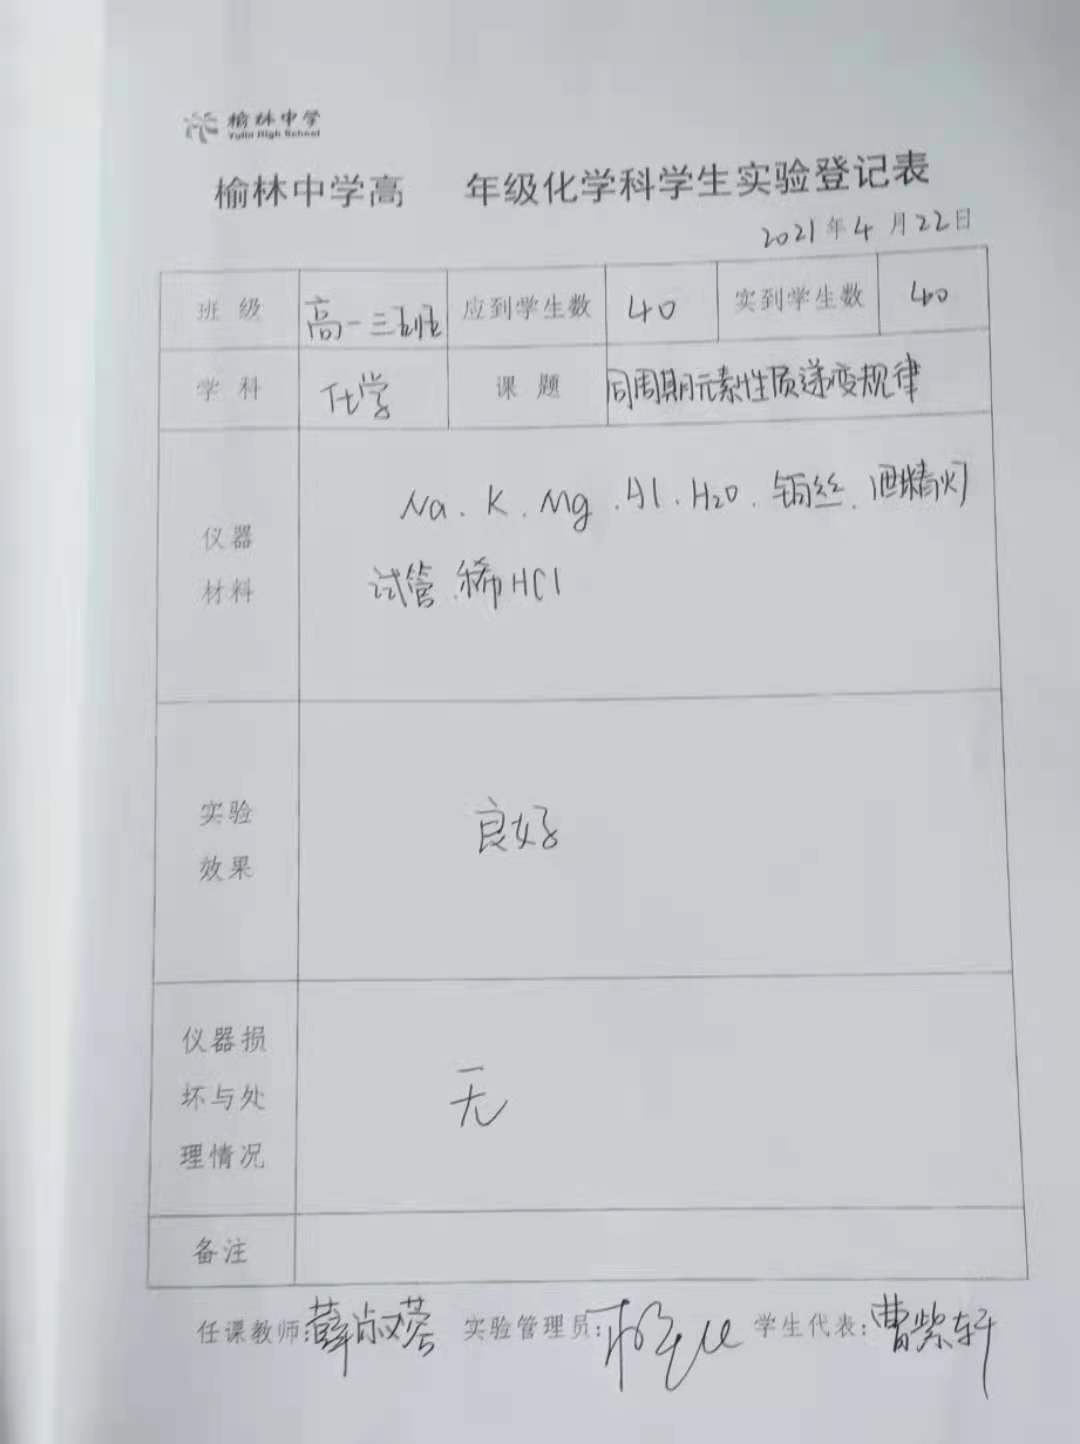 榆林中学
Yulin High School
榆林中学高 年级化学科学生实验登记表
2021年4月22日
班级 高一三班 应到学生数 40 实到学生数 40
学科 化学 课题 同周期元素性质递变规律
仪器
材料
Na.K.Mg.Al.H2O.铜丝.酒精灯
试管.稀HCl
实验
效果
良好
仪器损
坏与处
理情况
无
备注
任课教师:薛淑蓉 实验管理员: 学生代表:曹紫轩